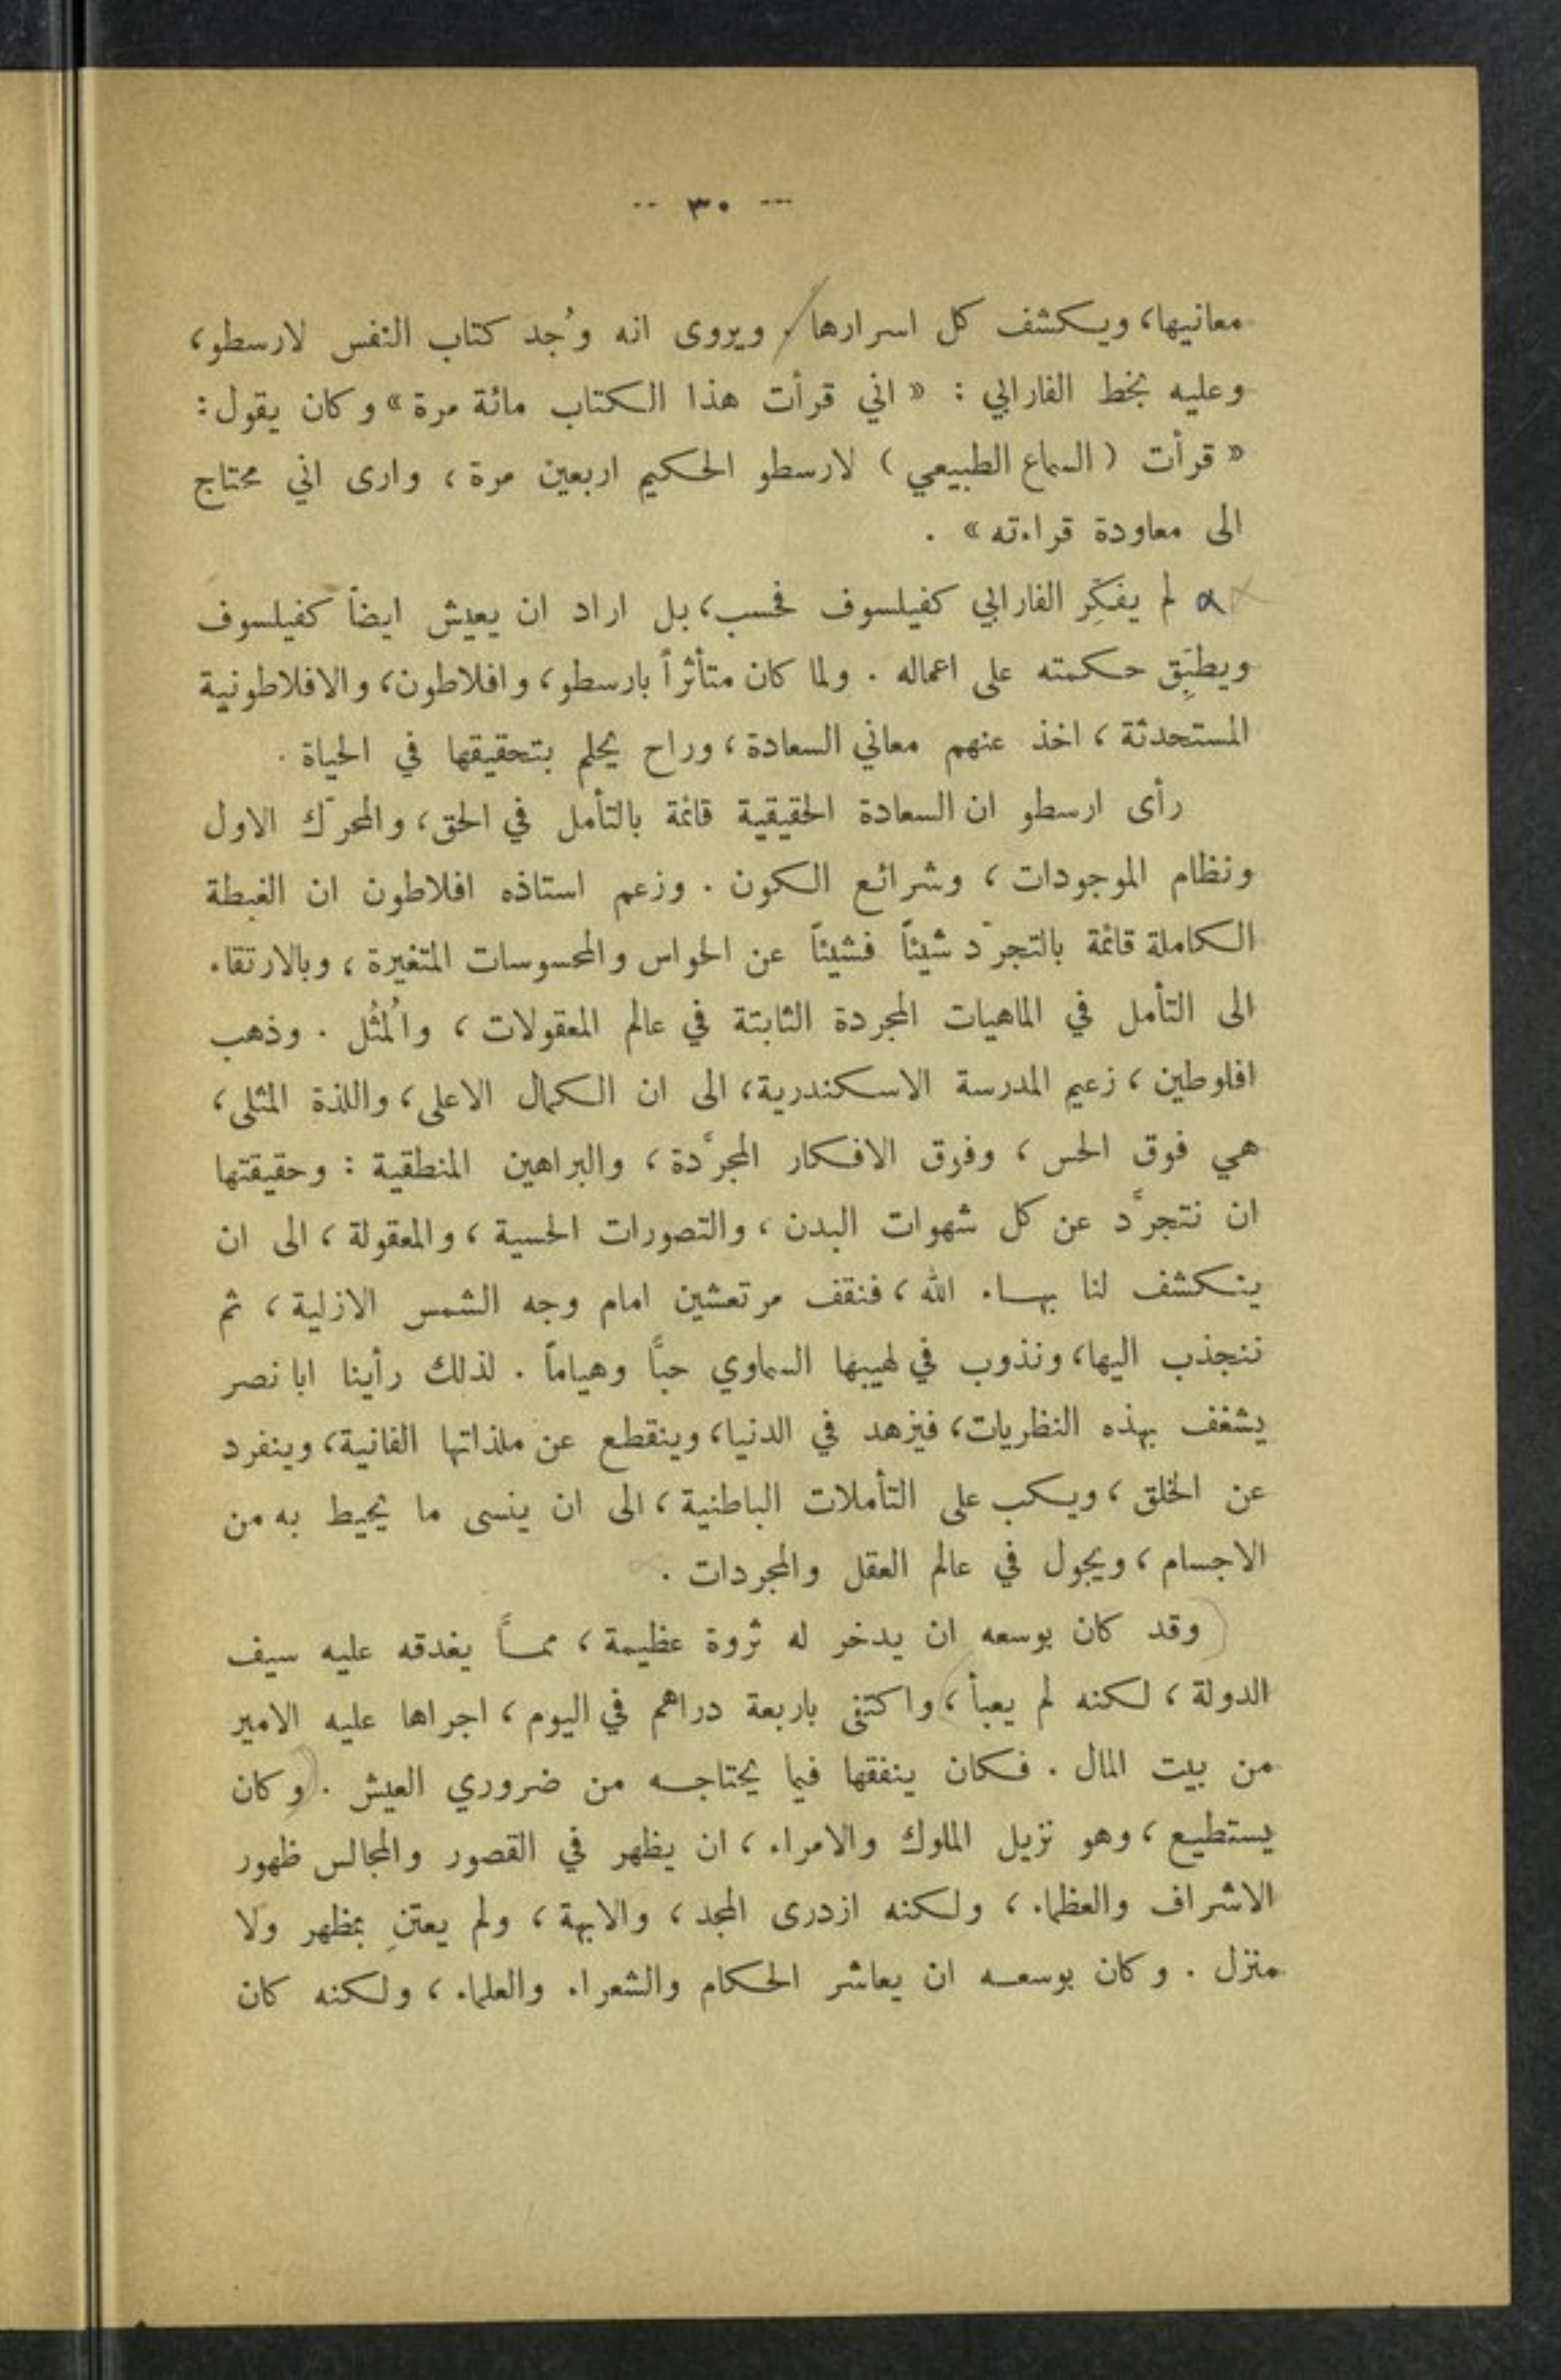 -- ٣٠ --
معانيها، ويكشف كل اسرارها. ويروى انه وُجد كتاب النفس لارسطو،
وعليه بخط الفارابي : « اني قرأت هذا الكتاب مائة مرة » وكان يقول :
« قرأت ( السماع الطبيعي ) لارسطو الحكيم اربعين مرة ، وارى اني محتاج
الى معاودة قراءته » .
لم يفكِّر الفارابي كفيلسوف فحسب، بل اراد ان يعيش ايضاً كفيلسوف
ويطبِّق حكمته على اعماله . ولما كان متأثراً بارسطو، وافلاطون، والافلاطونية
المستحدثة ، اخذ عنهم معاني السعادة ، وراح يحلم بتحقيقها في الحياة .
رأى ارسطو ان السعادة الحقيقية قائمة بالتأمل في الحق، والمحرّك الاول
ونظام الموجودات ، وشرائع الكون . وزعم استاذه افلاطون ان الغبطة
الكاملة قائمة بالتجرّد شيئاً فشيئاً عن الحواس والمحسوسات المتغيرة ، وبالارتقاء
الى التأمل في الماهيات المجردة الثابتة في عالم المعقولات ، والمُثُل . وذهب
افلوطين ، زعيم المدرسة الاسكندرية، الى ان الكمال الاعلى، واللذة المثلى،
هي فوق الحس ، وفوق الافكار المجرَّدة ، والبراهين المنطقية : وحقيقتها
ان نتجرَّد عن كل شهوات البدن ، والتصورات الحسية ، والمعقولة ، الى ان
ينكشف لنا بهاء الله ، فنقف مرتعشين امام وجه الشمس الازلية ، ثم
ننجذب اليها، ونذوب في لهيبها السماوي حبًّا وهياماً . لذلك رأينا ابا نصر
يشغف بهذه النظريات، فيزهد في الدنيا، وينقطع عن ملذاتها الفانية، وينفرد
عن الخلق ، ويكب على التأملات الباطنية ، الى ان ينسى ما يحيط به من
الاجسام ، ويجول في عالم العقل والمجردات .
وقد كان بوسعه ان يدخر له ثروة عظيمة ، ممـاً يغدقه عليه سيف
الدولة ، لكنه لم يعبأ ، واكتفى باربعة دراهم في اليوم ، اجراها عليه الامير
من بيت المال . فكان ينفقها فيما يحتاجه من ضروري العيش . وكان
يستطيع ، وهو نزيل الملوك والامراء ، ان يظهر في القصور والمجالس ظهور
الاشراف والعظماء ، ولكنه ازدرى المجد ، والابهة ، ولم يعتنِ بمظهر ولا
منزل . وكان بوسعه ان يعاشر الحكام والشعراء والعلماء ، ولكنه كان